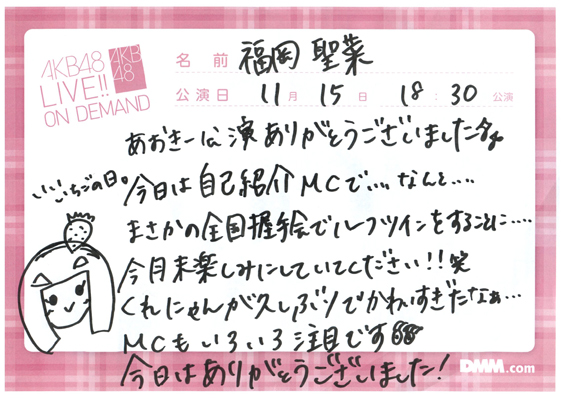 AKB48
LIVE!!
ON DEMAND
AKB
48
名前 福岡 聖菜
公演日 11月 15日 18:30 公演
あおきー公演ありがとうございました
いいいちごの日。
今日は自己紹介MCで、、、なんと、、、、
まさかの全国握手会でルーフツインをすることに、、、、
今月末楽しみにしていてください!!笑
くれにゃんが久しぶりでかわいすぎたなぁ…
MCもいろいろ注目です
今日はありがとうございました!
DMM.com